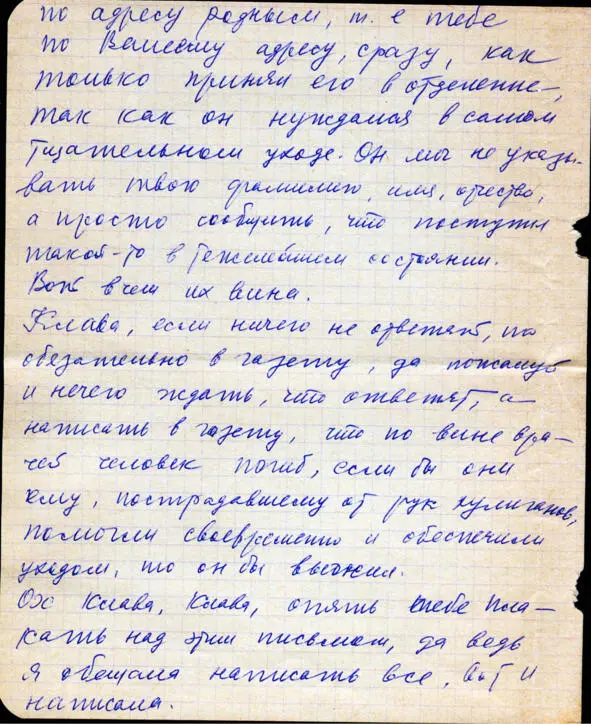 по адресу родным, т. е тебе
по Вашему адресу, сразу, как
только приняли его в отделение,
так как он нуждался в самом
тщательном уходе. Он мог не указы-
вать твою фамилию, имя, отчество,
а просто сообщить, что поступил
такой-то в тяжелейшем состоянии.
Вот в чем их вина.
Клава, если ничего не ответят, то
обязательно в газету, да пожалуй
и нечего ждать, что ответят, а
написать в газету, что по вине вра-
чей человек погиб, если бы они
ему, пострадавшему от рук хулиганов,
помогли своевременно и обеспечили
уходом, то он бы выжил.
Ох Клава, Клава, опять тебе пла-
кать над этим письмом, да ведь
я обещала написать все, вот и
написала.